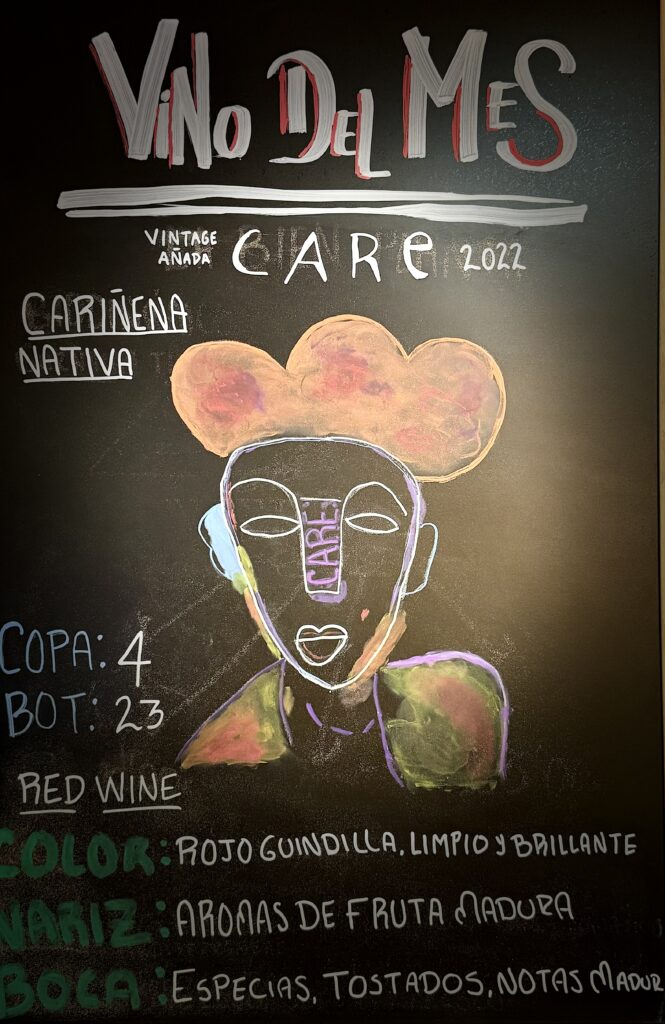 VINO DEL MES
VINTAGE
AÑADA
CARE 2022
CARIÑENA
NATIVA
CARE
COPA: 4
BOT: 23
RED WINE
COLOR: ROJO GUINDILLA, LIMPIO Y BRILLANTE
NARIZ: AROMAS DE FRUTA MADURA
BOCA: ESPECIAS, TOSTADOS, NOTAS MADUR